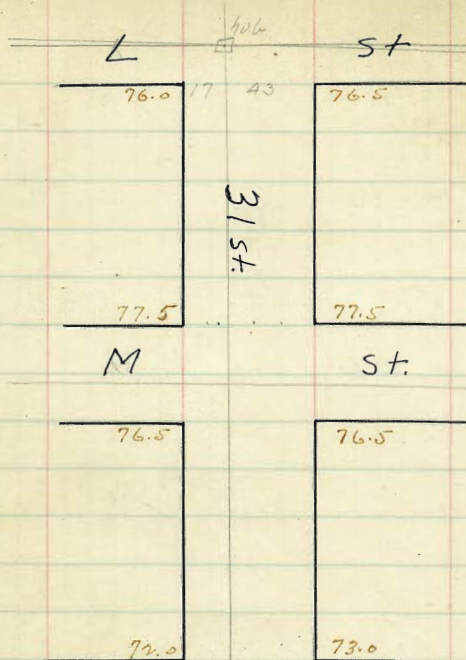 hub
L St
76.0 17 43 76.5
31 st.
77.5 77.5
M St.
76.5 76.5
72.0 73.0